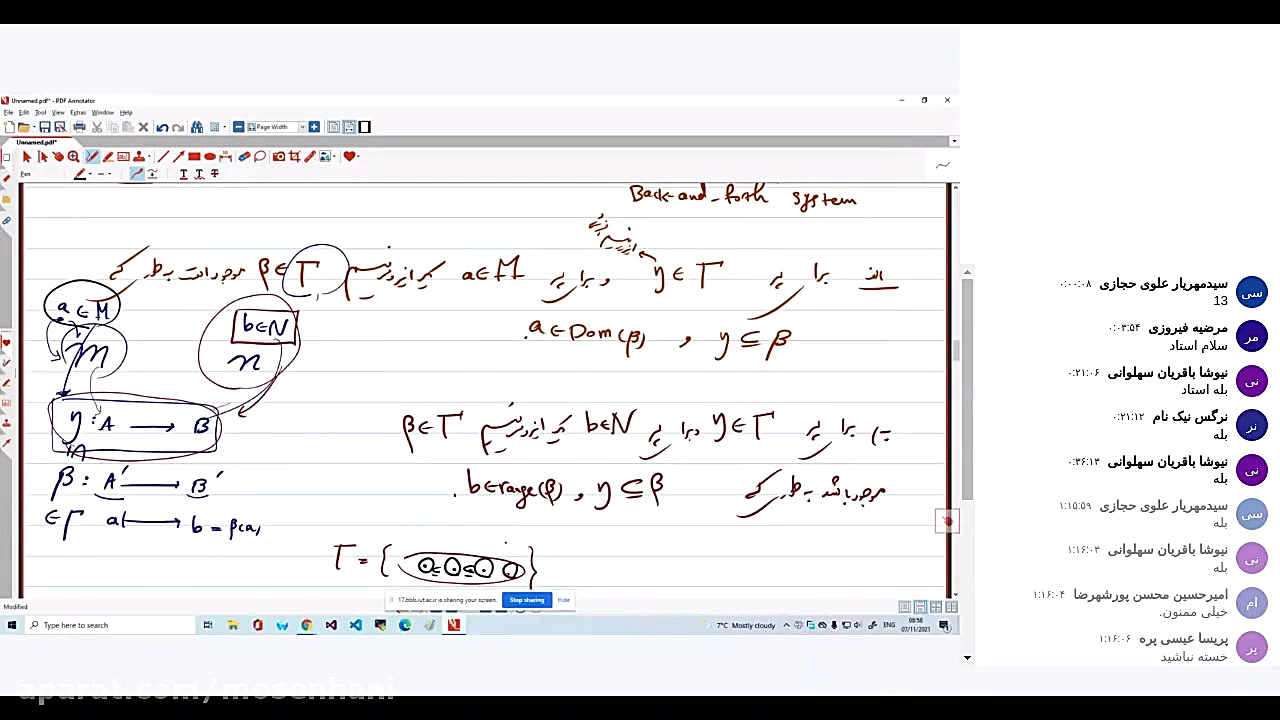 Unnamed.pdf* - PDF Annotator
File Edit Tool View Extras Window Help
Page Width
Unnamed.pdf*
Pen
Back-and-forth system
الف برای هر γ ∈ Γ و برای هر a ∈ M یک ایزومرفیسم β ∈ Γ موجود است به طوری که
a ∈ Dom(β) , γ ⊆ β
ب) برای هر γ ∈ Γ و برای هر b ∈ N یک ایزومرفیسم β ∈ Γ
موجود باشد به طوری که γ ⊆ β , b ∈ range(β) .
a ∈ M
M
b ∈ N
N
γ : A → B
β : A′ → B′
∈ Γ a ↦ b = β(a)
Γ = { ⊆ ⊆ }
17.bbb.iut.ac.ir is sharing your screen. Stop sharing Hide
Modified
Type here to search
7°C Mostly cloudy ENG 08:58 07/11/2021
سی سیدمهریار علوی حجازی ۰:۰۰:۰۸
13
مر مرضیه فیروزی ۰:۰۳:۵۴
سلام استاد
نی نیوشا باقریان سهلوانی ۰:۲۱:۰۶
بله استاد
نر نرگس نیک نام ۰:۲۱:۱۲
بله
نی نیوشا باقریان سهلوانی ۰:۳۶:۱۳
بله
سی سیدمهریار علوی حجازی ۱:۱۵:۵۹
بله
نی نیوشا باقریان سهلوانی ۱:۱۶:۰۳
بله
ام امیرحسین محسن پورشهرضا ۱:۱۶:۰۴
خیلی ممنون.
پر پریسا عیسی پره ۱:۱۶:۰۶
خسته نباشید
aparat.com/mosenhani